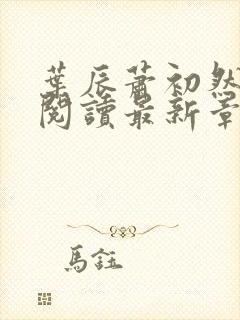 葉辰蕭初然
閱讀最新章
馬鈺